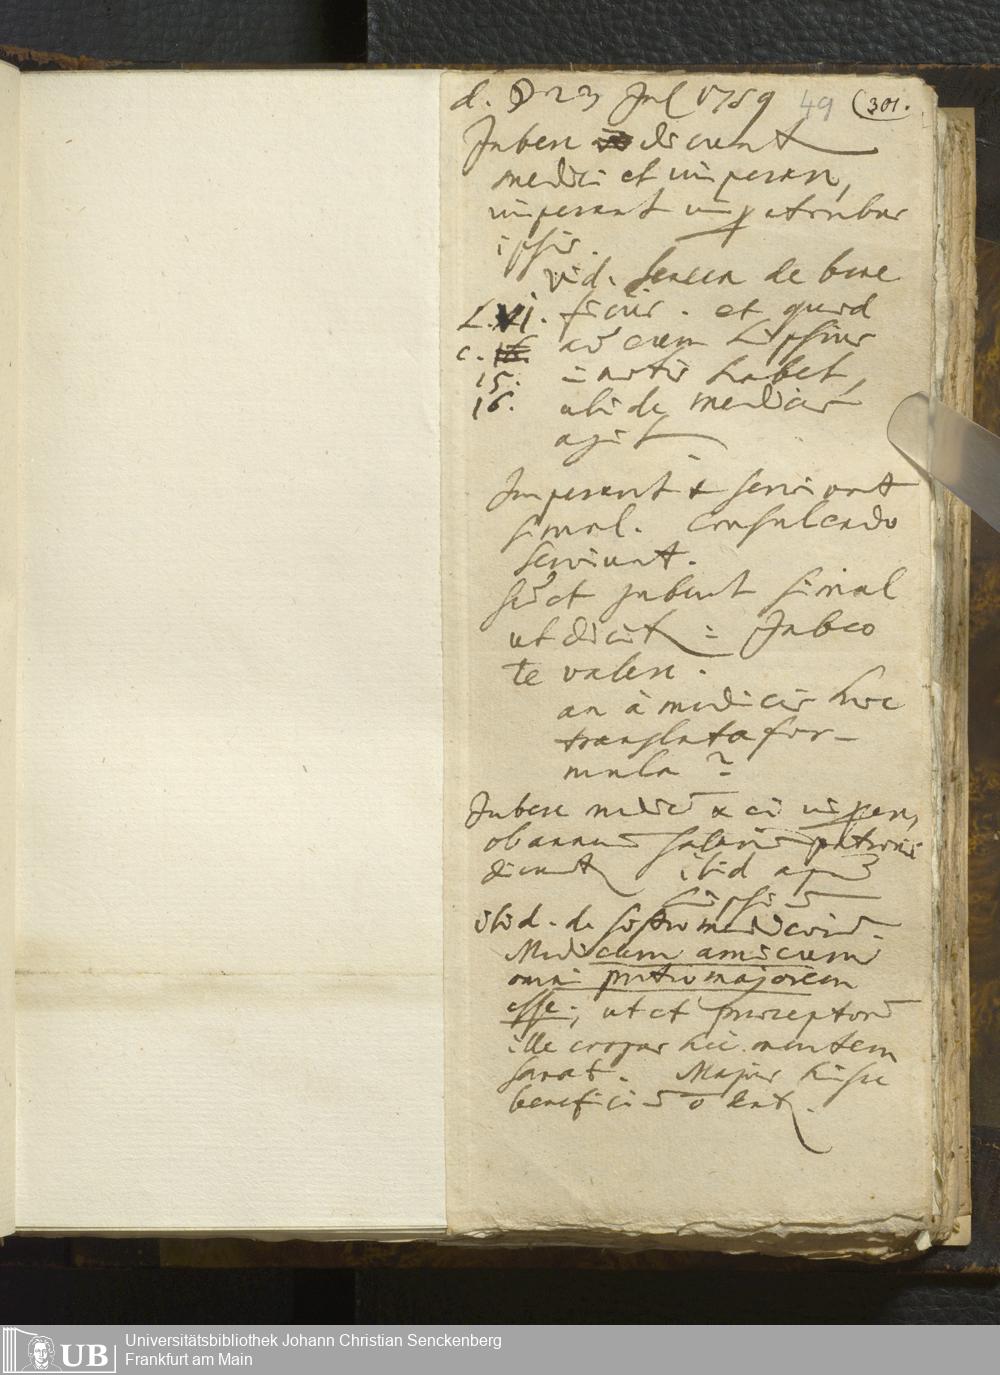 d. ☽ 23 Jul 1759 49 (301.
Jubere dicunt
medici et imperare,
imperant imperatoribus
ipsis.
vid. Senecam de bene
L. VI. ficiis. et quid
c. 16. ad eum Lipsius
15. in notis habet,
16. ubi de medicis
agit
Imperant & serviunt
simul. Consulendo
serviunt.
Sed et jubent simul
ut dicit: Jubeo
te valere.
an à medicis hoc
translata for-
mula?
Jubere medici & ei imperare,
ob annuum salarium patroni
dicunt ibid apud
Lipsium
ibid. de sostro medicorum.
Medicum amicum
omni pretio majorem
esse; ut et praeceptorem
ille corpus hic mentem
sanat. Majus hisce
beneficium